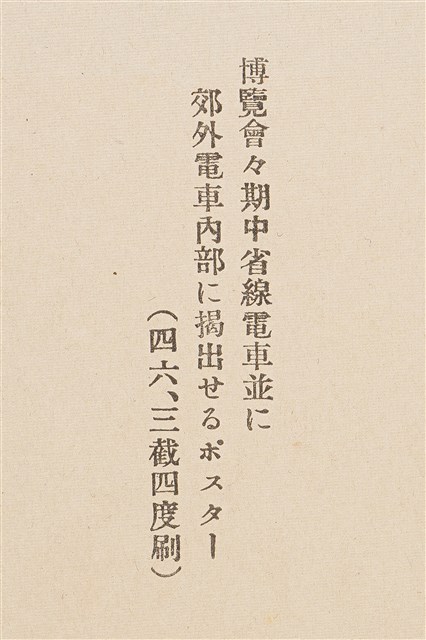 博覽會々期中省線電車並に
郊外電車內部に揭出せるポスター
（四六、三截四度刷）